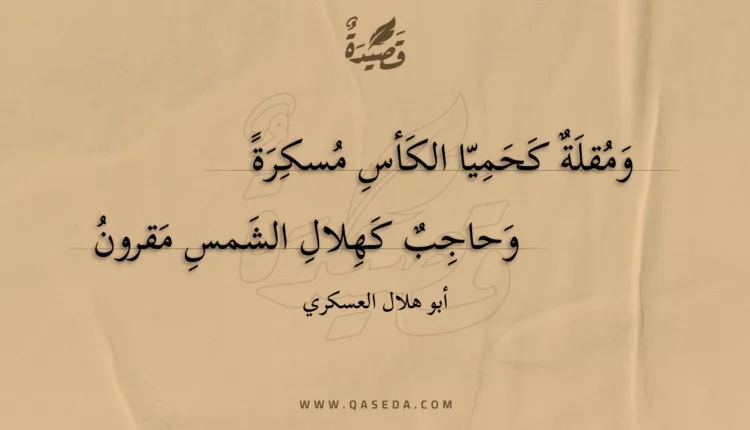 قَصِيدَةٌ
وَمُقلَةٌ كَحَمِيّا الكَأسِ مُسكِرَةً
وَحاجِبٌ كَهِلالِ الشَمسِ مَقرونُ
أبو هلال العسكري
WWW.QASEDA.COM